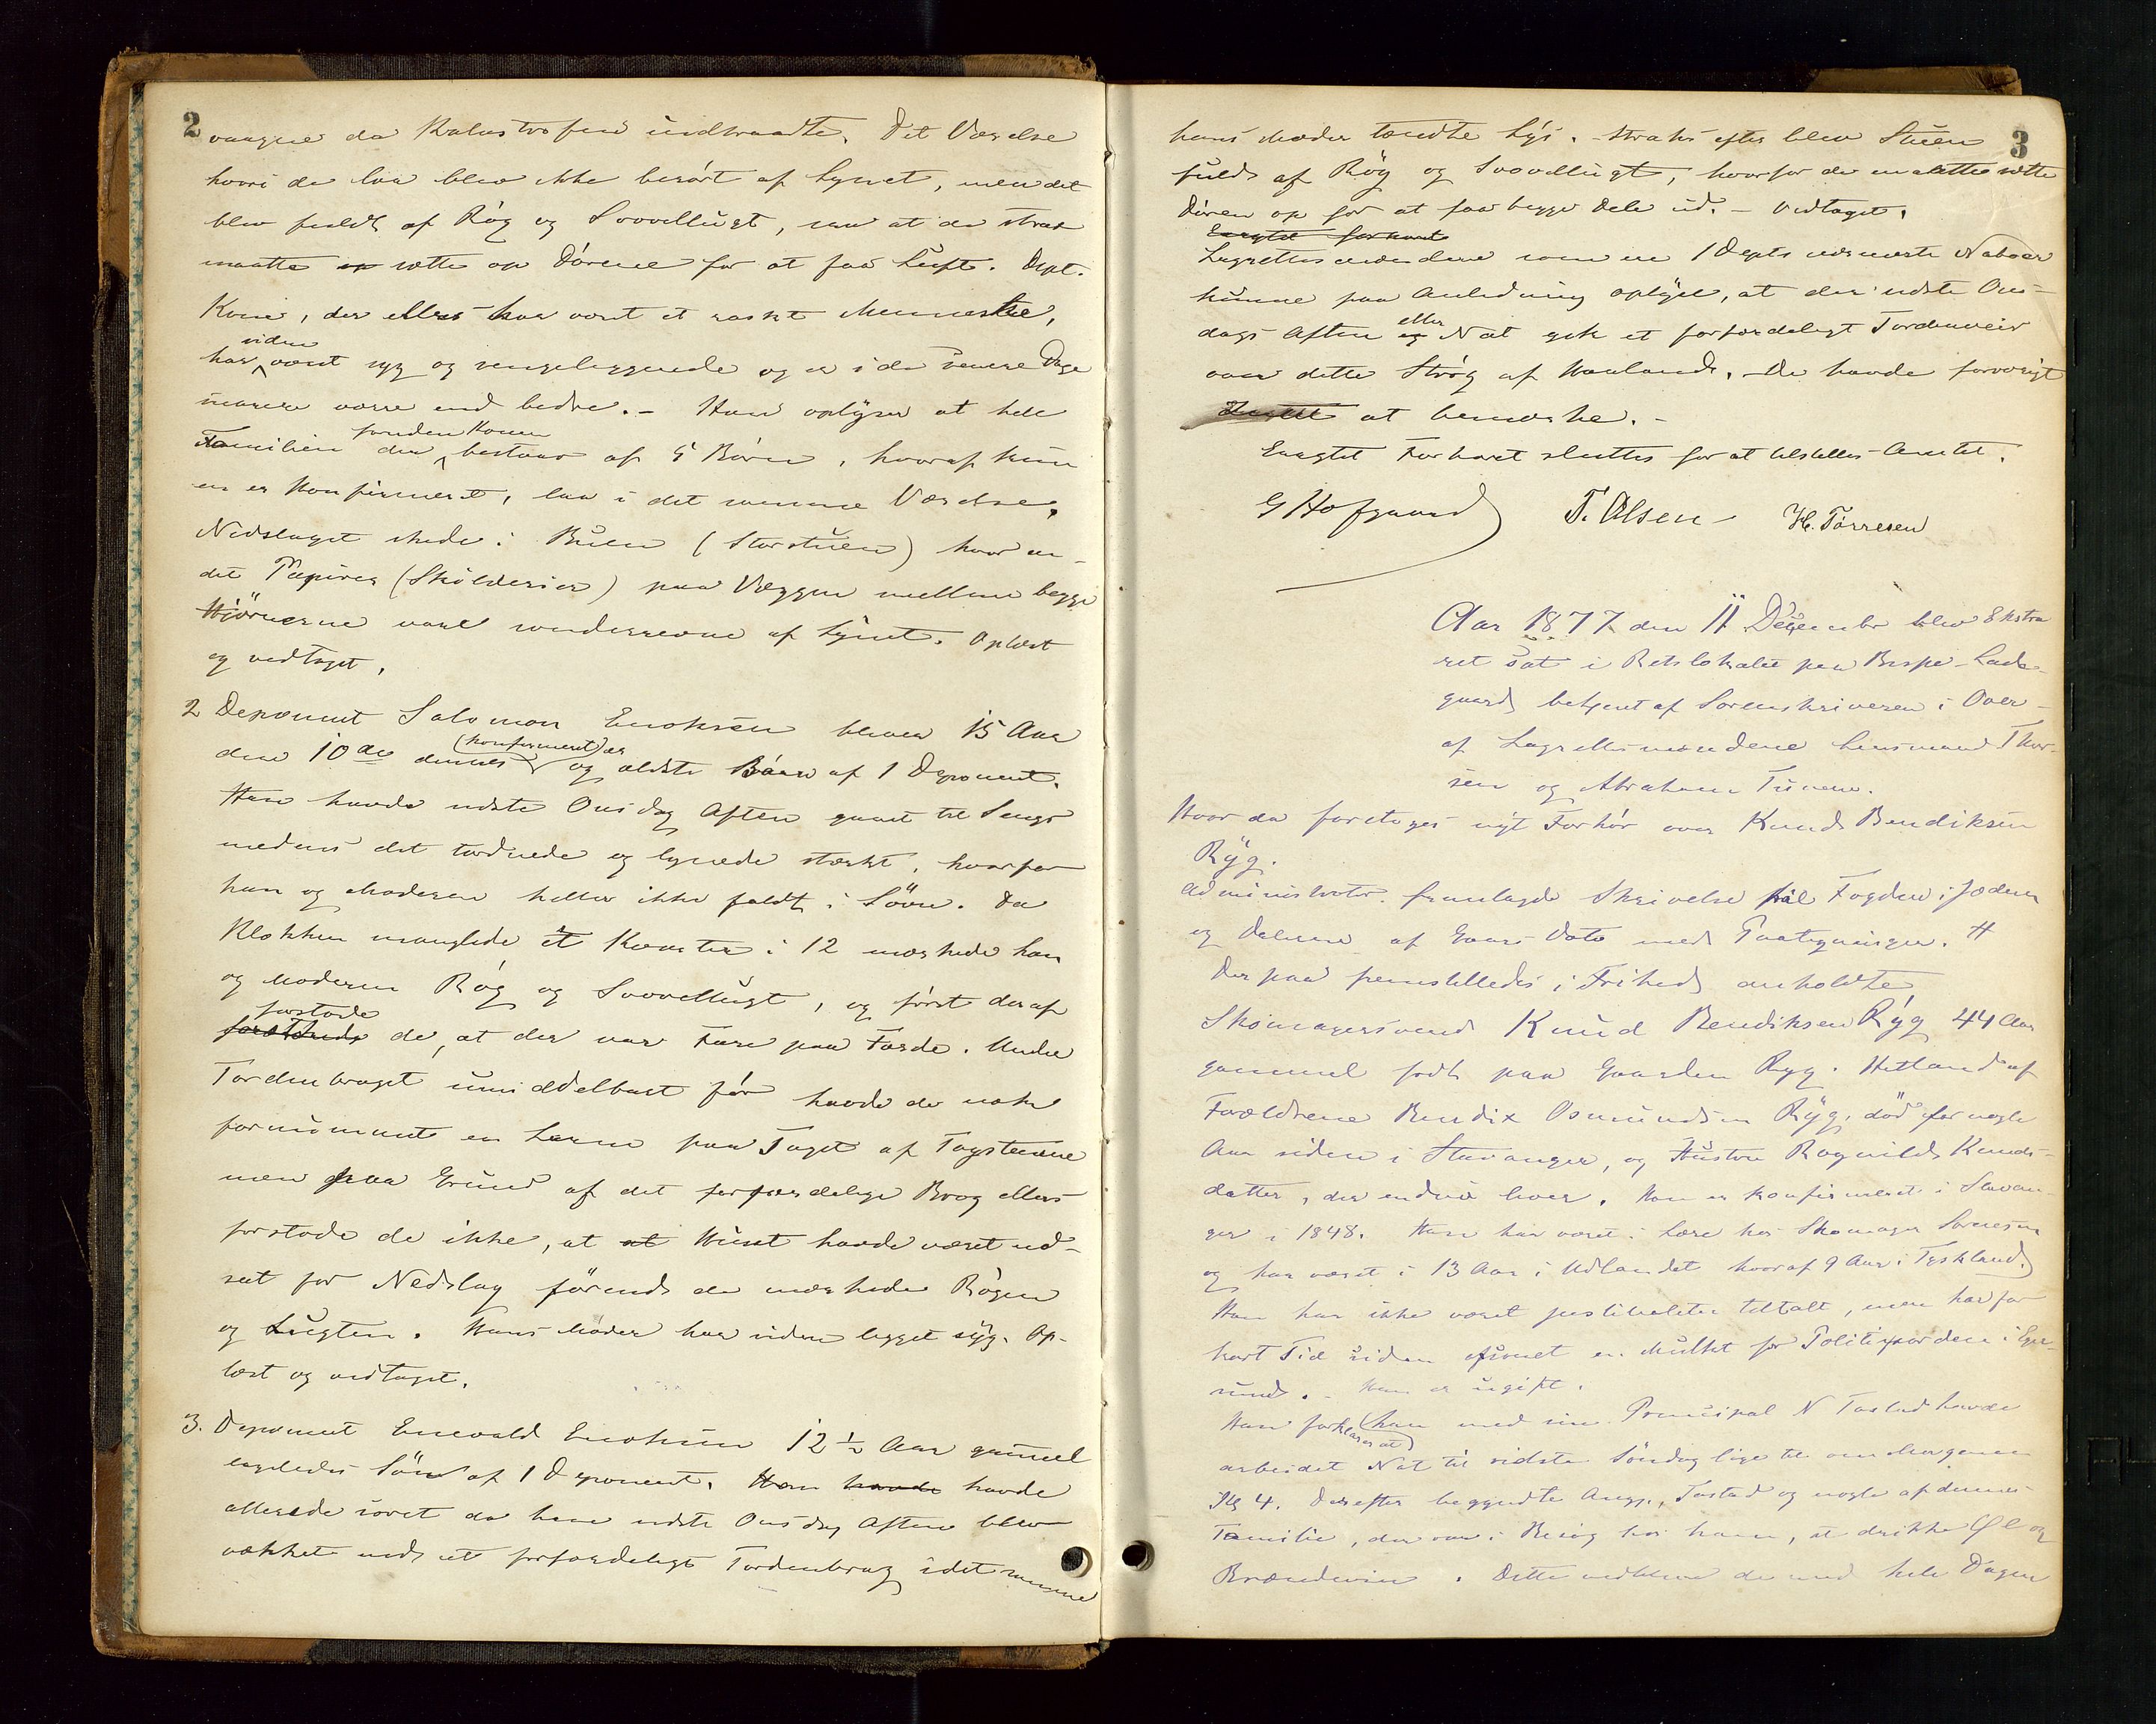 2
vaagne da Katastrofen indtraadte. Det Værelse
hvori de laa blev ikke berört af Lynet, men det
blev fuldt af Røg og Svovellugt, saa at de strax
maatte op sætte op Dörene for at faa Luft. Dept.
Kone, der ellers har været et raskt Menneske,
siden
har været syg og sengeliggende og er i de senere Dage
snarere værre end bedre. – Han oplyser at hele
foruden Konen
Familien der bestaar af 5 Börn, hvoraf kun
en er Konfirmeret, laa i det samme Værelse.
Nedslaget skede i Buen (Storstuen) hvor en-
del Papirer (Skilderier) paa Væggen mellem begge
Hjörnerne vare sönderrevne af Lynet. Oplæst
og vedtaget.
2 Deponent Salomon Enoksen bliver 15 Aar
(konfirmeret) er
den 10de dennes og ældste Barn af 1 Deponent.
Han havde sidste Onsdag Aften gaaet til Sengs
medens det tordnede og lynede stærkt, hvorfor
han og Moderen heller ikke faldt i Sövn. Da
Klokken manglede et Kvarter i 12 mærkede han
og Moderen Røg og Svovellugt, og först deraf
forstode
de, at der var Fare paa Færde. Under
Tordenbraget umiddelbart för havde de nok
fornummet en Larm paa Taget af Tagstenene
men paa Grund af det forfærdelige Brag ellers
forstode de ikke, at at Huset havde været ud-
sat for Nedslag förend de mærkede Røgen
og Lugten. Hans Moder har siden ligget syg. Op-
læst og vedtaget.
3. Deponent Enevald Enoksen 12½ Aar gammel
ligeledes Sön af 1 Deponent. Han havde havde
allerede sovet da han sidste Onsdag Aften blev
vækket ved et forfærdeligt Tordenbrag idet samme
3
hans Moder tændte Lys. Straks efter blev Stuen
fuld af Røg og Svovellugt, hvorfor de maatte sætte
Dören op for at faa begge Dele ud. – Vedtaget.
Eragtet Forhøret
Lagrettesmændene som ere 1 Depts nærmeste Naboer
kunne paa Anledning oplyse, at der sidste Ons-
eller
dags Aften og Nat gik et forfærdeligt Tordenveir
over dette Strög af Haaland. De havde forøvrigt
at bemærke. –
Eragtet Forhøret sluttes for at tilstilles Amtet.
G Hofgaard T. Olsen H. Törresen
Aar 1877 den 11 Dezember blev Ekstra
ret sat i Retslokalet paa Bispe-Lade-
gaard betjent af Sorenskriveren i Over-
af Lagrettesmændene Lensmand Thor-
sen og Abraham
Hvor da foretoges nyt Forhör over Knud Bendiksen
Ryg.
Administrator fremlagde Skrivelse fra Fogden i Jæderen
og Dalerne af Gaars Dato med Paategninger. #
Derpaa fremstilledes i Frihed anholdte
Skomagersvend Knud Bendiksen Ryg 44 Aar
gammel födt paa Gaarden Ryg i Hetland af
Forældrene Bendix Osmundsen Ryg, död for nogle
Aar siden i Stavanger, og Hustru Ragnild Knuds-
datter, der endnu lever. Han er konfirmeret i Stavan-
ger i 1848. Han har været i Lære hos Skomager Sörensen
og har været i 13 Aar i Udlandet hvoraf 9 Aar i Tyskland.
Han har ikke været justitialiter tiltalt, men har for
kort Tid siden sonet en Mulkt for Politiuorden i Eger-
sund. – Han er ugift.
Han forklarer at han med sin Principal N Tastad havde
arbeidet Nat til sidste Söndag lige til om Morgenen
Kl 4. Derefter begyndte Angj., Tastad og nogle af dennes
Familie, der var i Besög hos ham, at drikke Øl og
Brændevin. Dette vedbleve de med hele Dagen